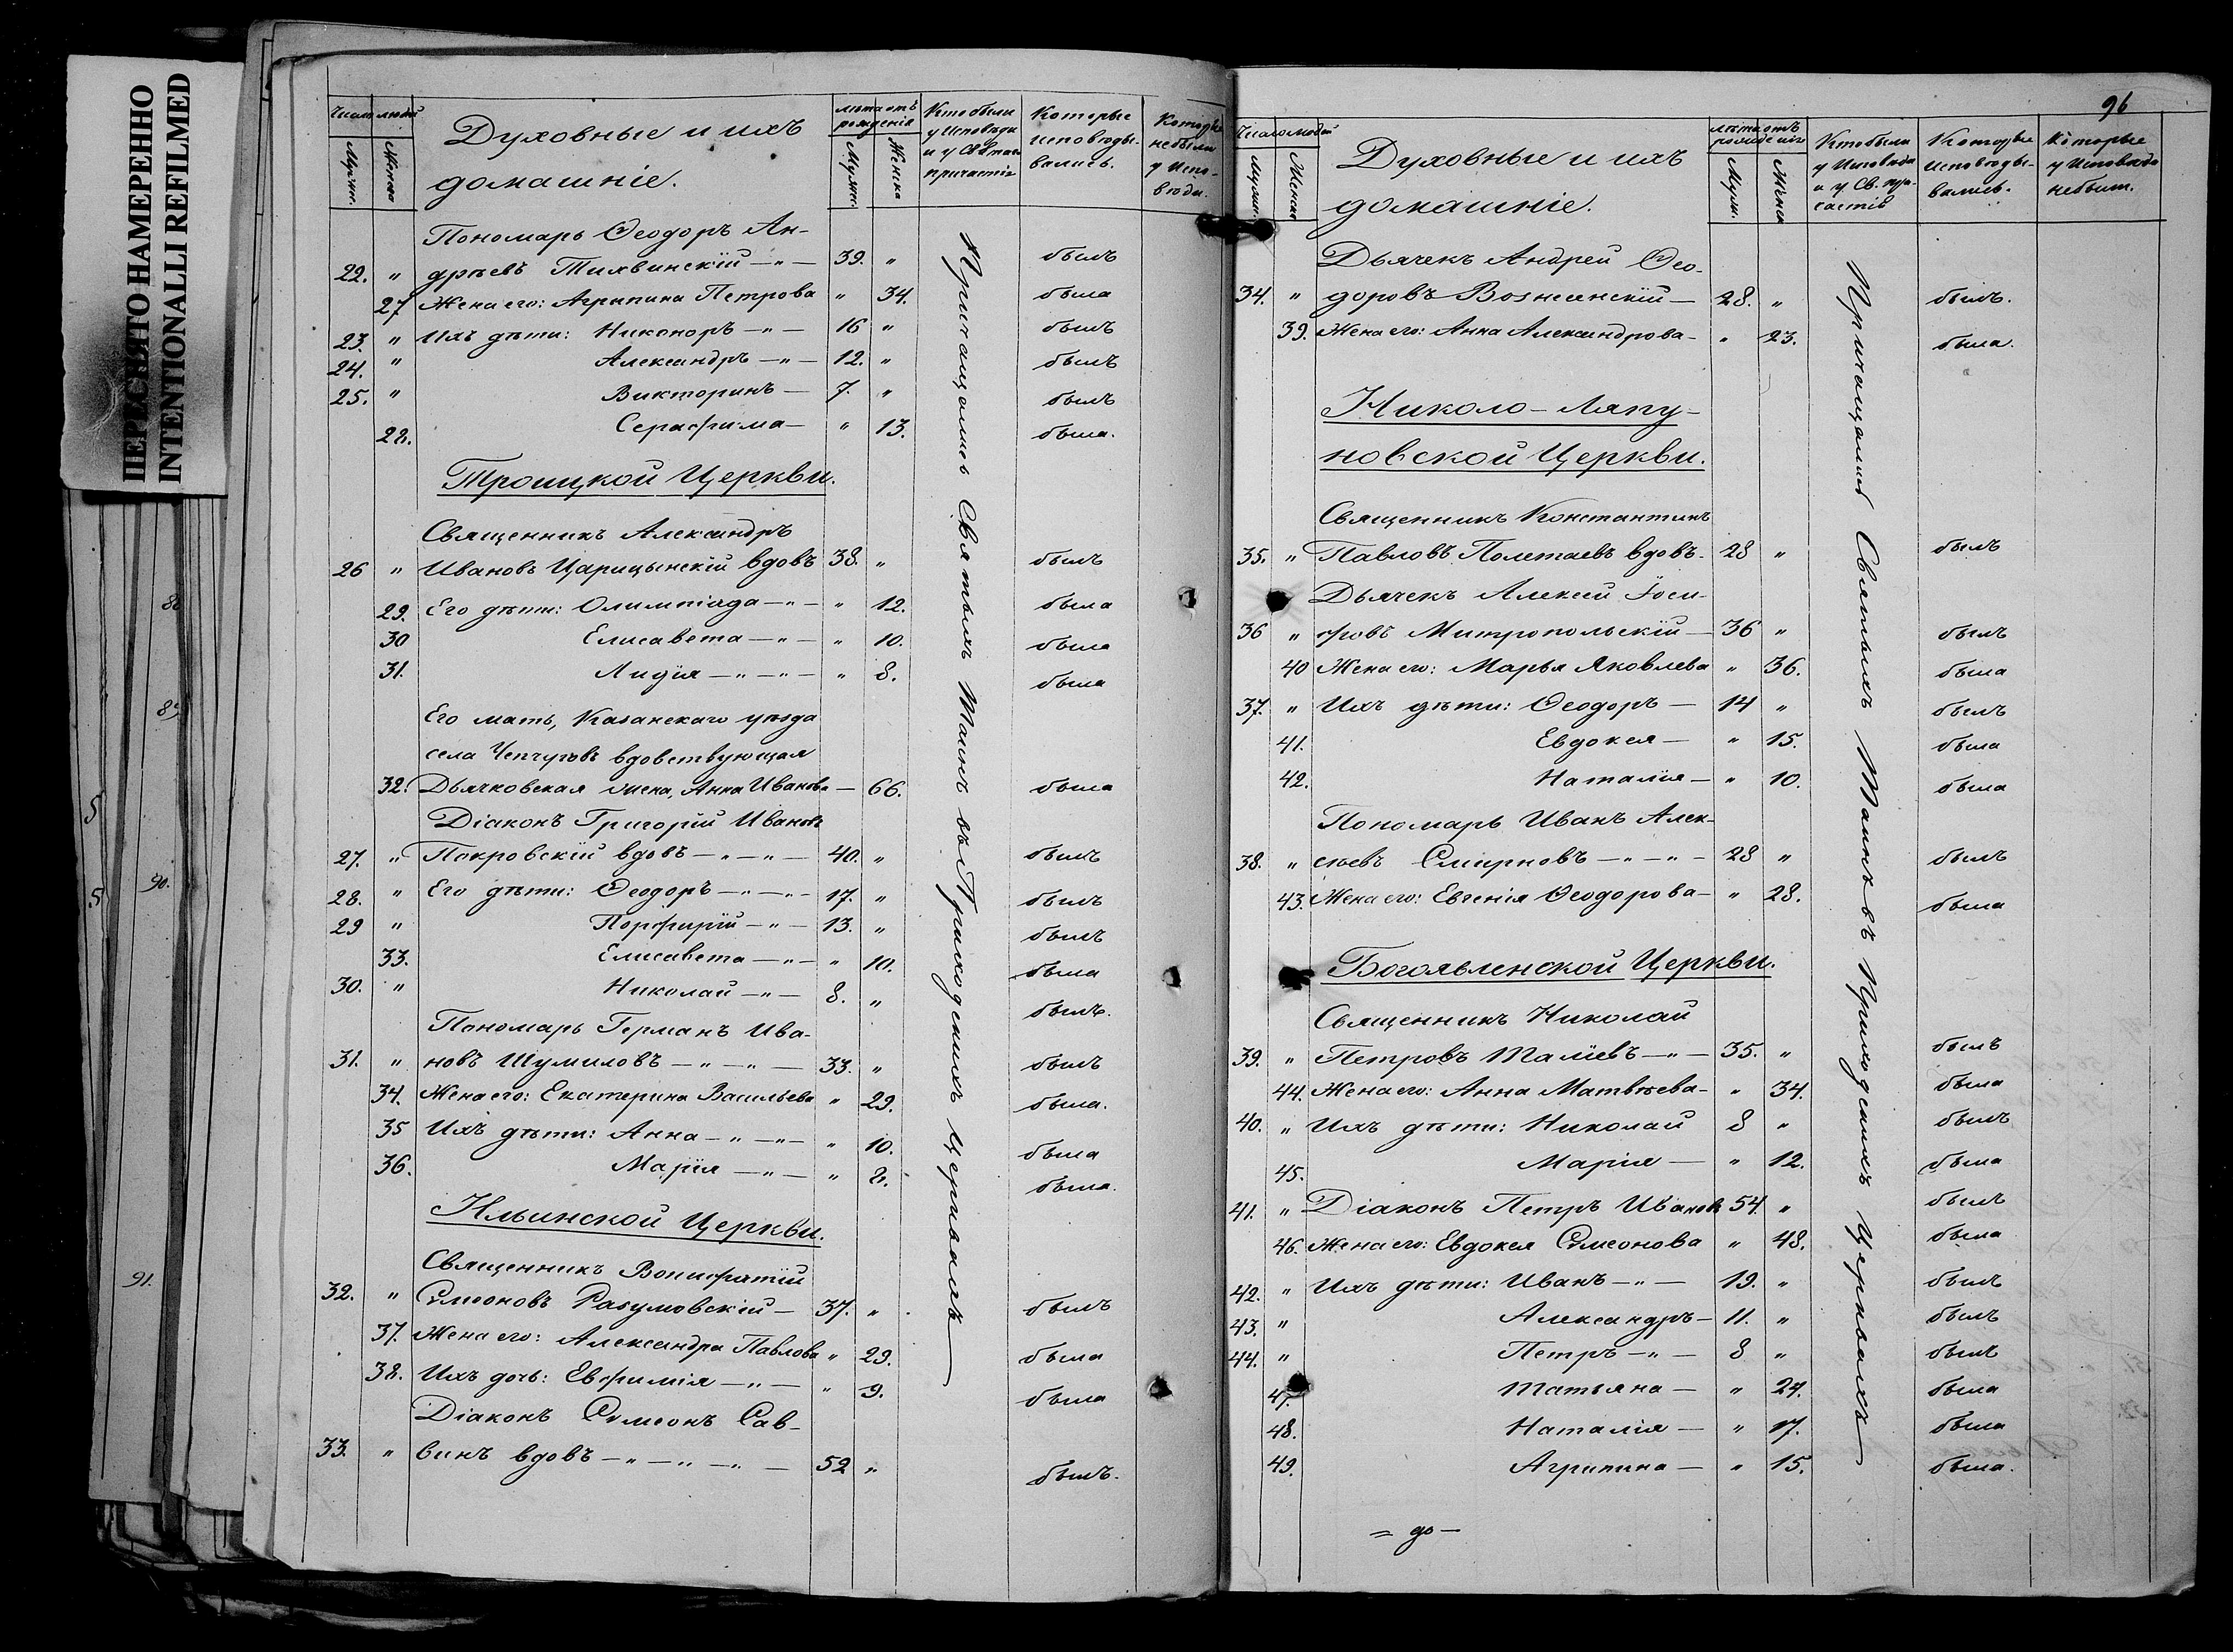 ПЕРЕСНЯТО НАМЕРЕННО
INTENTIONALLI REFILMED
Число людей
Мужск.
Женска
Духовные и ихъ
домашніе.
лѣта отъ
рожденія
Мужск.
Женска
Кто были
у Исповѣди
и у Святаго
причастія
Которые
исповѣды-
вались.
Которые
небыли
у Испо-
вѣди.
Пономарь Ѳеодоръ Ан-
22. " дрѣевъ Тихвинскій —"— 39. " былъ
27 Жена его: Агрипина Петрова " 34. была
23. " Ихъ дѣти: Никоноръ —"— 16 " былъ
24. " Александръ —"— 12. " былъ
25. " Викторинъ — 7. " былъ
28. Серафима — " 13. была.
Троицкой Церкви.
Священникъ Александръ
26 " Ивановъ Царицынскій вдовъ 38. " былъ
29. Его дѣти: Олимпіада —"— " 12. была
30 Елисавета —"— " 10. была
31. Лидія —"—"— " 8. была
Его мать, Казанскаго уѣзда
села Чепчуговъ вдовствующая
32. Дьячковская жена, Анна Иванова — 66. была
Діаконъ Григорій Ивановъ
27. " Покровскій вдовъ —"—"— 40. " былъ
28. " Его дѣти: Ѳеодоръ —"—"— 17. " былъ
29 " Порфирій —"— 13. " былъ
33. Елисавета —"— " 10. была
30. " Николай —"— 8. " былъ.
Пономарь Германъ Ива-
31. " новъ Шумиловъ —"—"— 33. " былъ
34. Жена его: Екатерина Васильева " 29. была.
35 Ихъ дѣти: Анна —"—"— " 10. была
36. Марія —"— " 8. была.
Ильинской Церкви.
Священникъ Вонифатій
32. " Симеоновъ Разумовскій — 37. " былъ
37. Жена его: Александра Павлова " 29. была
38. Ихъ дочь: Евфимія —"— " 9. была
Діаконъ Симеонъ Сав-
33. " винъ вдовъ —"—"—"— 52 " былъ.
Причащались Святыхъ Таинъ въ Приходскихъ Церквахъ
96
Число людей
Мужск.
Женска
Духовные и ихъ
домашніе.
лѣта отъ
рожденія
Мужск.
Женска
Кто были
у Исповѣди
и у Св. при-
частія
Которые
исповѣды-
вались.
Которые
у Исповѣди
небыли.
Дьячекъ Андрей Ѳео-
34. " доровъ Вознесенскій — 28. " былъ.
39. Жена его: Анна Александрова — " 23. была.
Николо-Ляпу-
новской Церкви.
Священникъ Константинъ
35. " Павловъ Полетаевъ вдовъ. 28 " былъ
Дьячекъ Алексей Іоси-
36 " фовъ Митропольскій — 36 " былъ
40 Жена его: Марья Яковлева " 36. была
37. " Ихъ дѣти: Ѳеодоръ — 14 " былъ
41. Евдокея — " 15. была
42. Наталія — " 10. была
Пономарь Иванъ Алек-
38. " сѣевъ Смирновъ —"—"— 28 " былъ
43. Жена его: Евгенія Ѳеодорова — " 28. была
Богоявленской Церкви.
Священникъ Николай
39. " Петровъ Таліевъ —"— 35. " былъ
44. Жена его: Анна Матвѣева — " 34. была
40. " Ихъ дѣти: Николай 8 " былъ
45. Марія — " 12. была
41. " Діаконъ Петръ Ивановъ 54. " былъ
46. Жена его: Евдокея Симеонова " 48. была
42. " Ихъ дѣти: Иванъ —"— 19. " былъ
43. " Александръ — 11. " былъ
44. " Петръ —"— 8 " былъ
47. Татьяна — " 24. была
48. Наталія — " 17. была
49. Агрипина — " 15. была.
Причащались Святыхъ Таинъ въ Приходскихъ Церквахъ
= до —
89
90.
91.
5
5